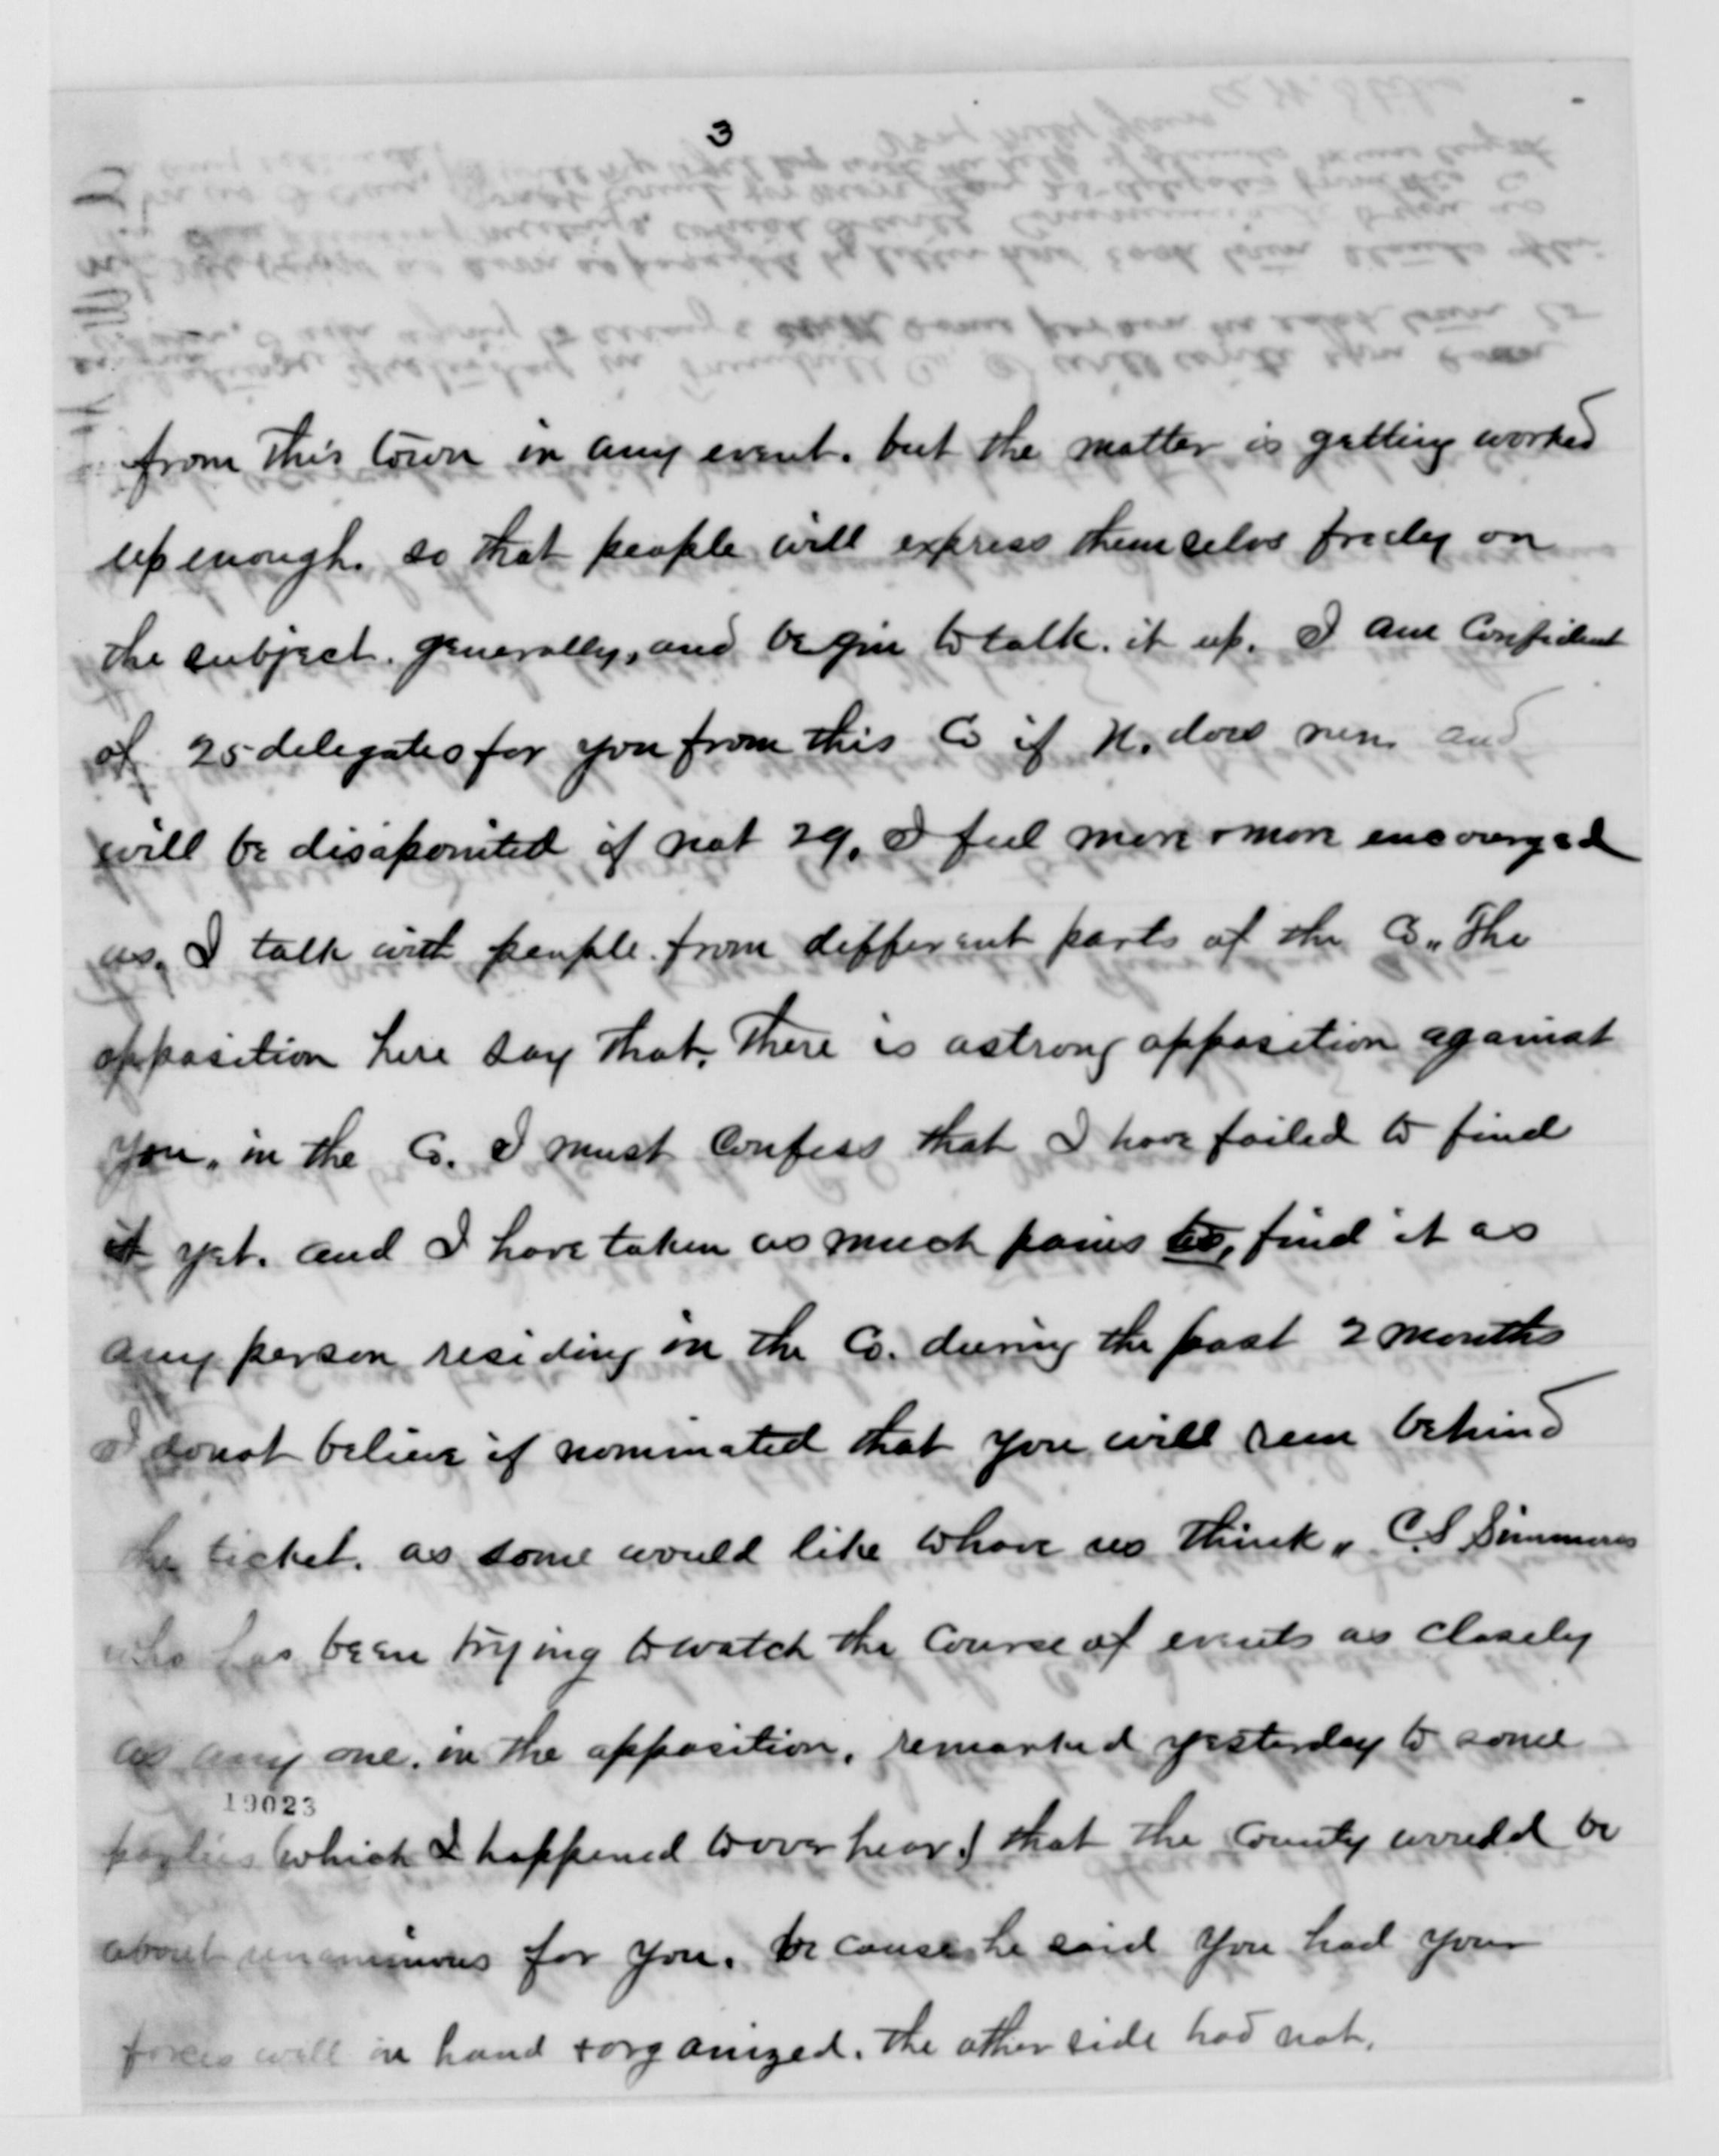 3
from this town in any event. but the matter is getting worked
up enough. so that people will express themselvs freely on
the subject. generally, and begin to talk. it up. I am Confident
of 25 delegates for you from this Co if H. does run. and
will be disapointed if not 29. I feel more & more encouraged
as. I talk with people. from different parts of the Co. The
opposition here say that. There is a strong opposition against
you. in the Co. I must Confess that I have failed to find
it yet. and I have taken as much pains to, find it as
any person residing in the Co. during the past 2 months
I do not believe if nominated that you will run behind
the ticket. as some would like to have us think. C. S. Simmons
who has been trying to watch the Course of events as Closely
as any one. in the opposition. remarked yesterday to some
19023
parties (which I happened to over hear) that the County would be
about unanimous for you. because he said you had your
forces well in hand & organized. The other side had not.